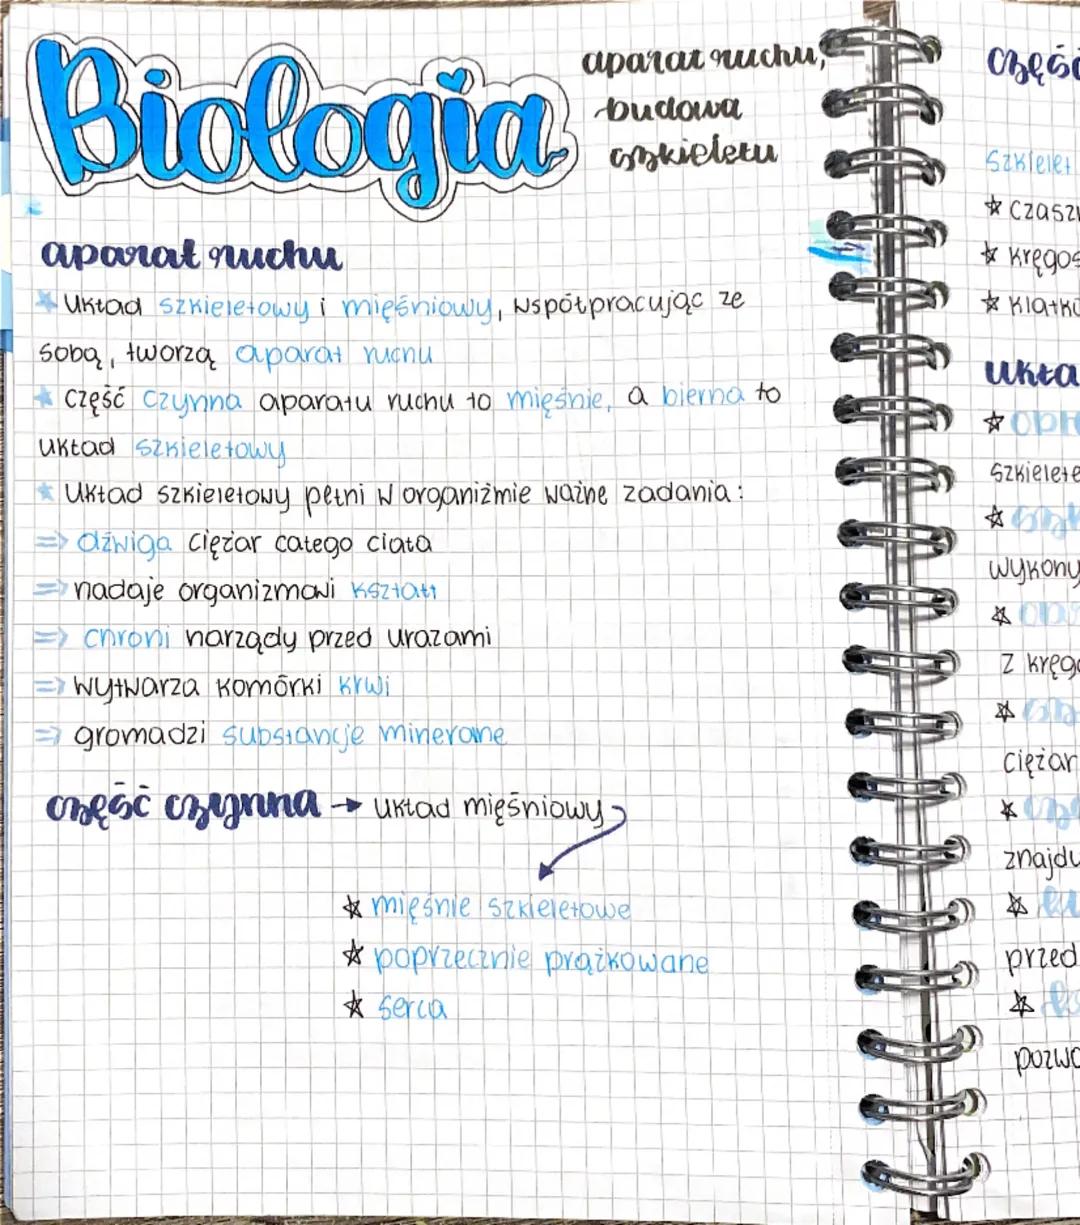 Biologia
aparat ruchu,
budowa
szkieletu
aparat ruchu
Układ szkieletowy i mięśniowy, współpracując ze
sobą, tworzą aparat ruchu
część czynna aparatu ruchu to mięśnie, a bierna to
układ szkieletowy
Układ szkieletowy pełni w organiźmie ważne zadania:
=> dźwiga ciężar całego ciała
=> nadaje organizmowi kształt
=> chroni narządy przed urazami
=> wytwarza komórki krwi
=> gromadzi substancje mineralne
część czynna → układ mięśniowy
mięśnie szkieletowe
poprzecznie prążkowane
serca
część
Szkielet
wykony
ciężar
przed